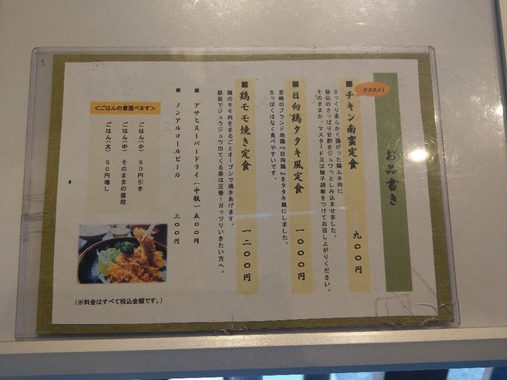 お品書き
オススメ！
■チキン南蛮定食 九〇〇円
さっくり柔らかく揚がった鶏ムネ肉に
秘伝のさっぱり甘酢をジュワっとしみ込ませました。
そのままか、マスタード又は柚子胡椒をつけてお召し上がりください。
■日向鶏タタキ風定食 一〇〇〇円
宮崎のブランド地鶏『日向鶏』をタタキ風にしました。
生っぽくはなく食べやすいです。
■鶏モモ焼き定食 一二〇〇円
鶏のモモ肉をまるごとオーブンで焼きあげます。
鉄板でジュウジュウ出てくる姿は圧巻！ガッツリいきたい方へ。
■アサヒスーパードライ（中瓶） 五〇〇円
■ノンアルコールビール 三〇〇円
＜ごはんの量選べます＞
ごはん（小） ５０円引き
ごはん（中） そのままの値段
ごはん（大） ５０円増し
（※料金はすべて税込金額です。）